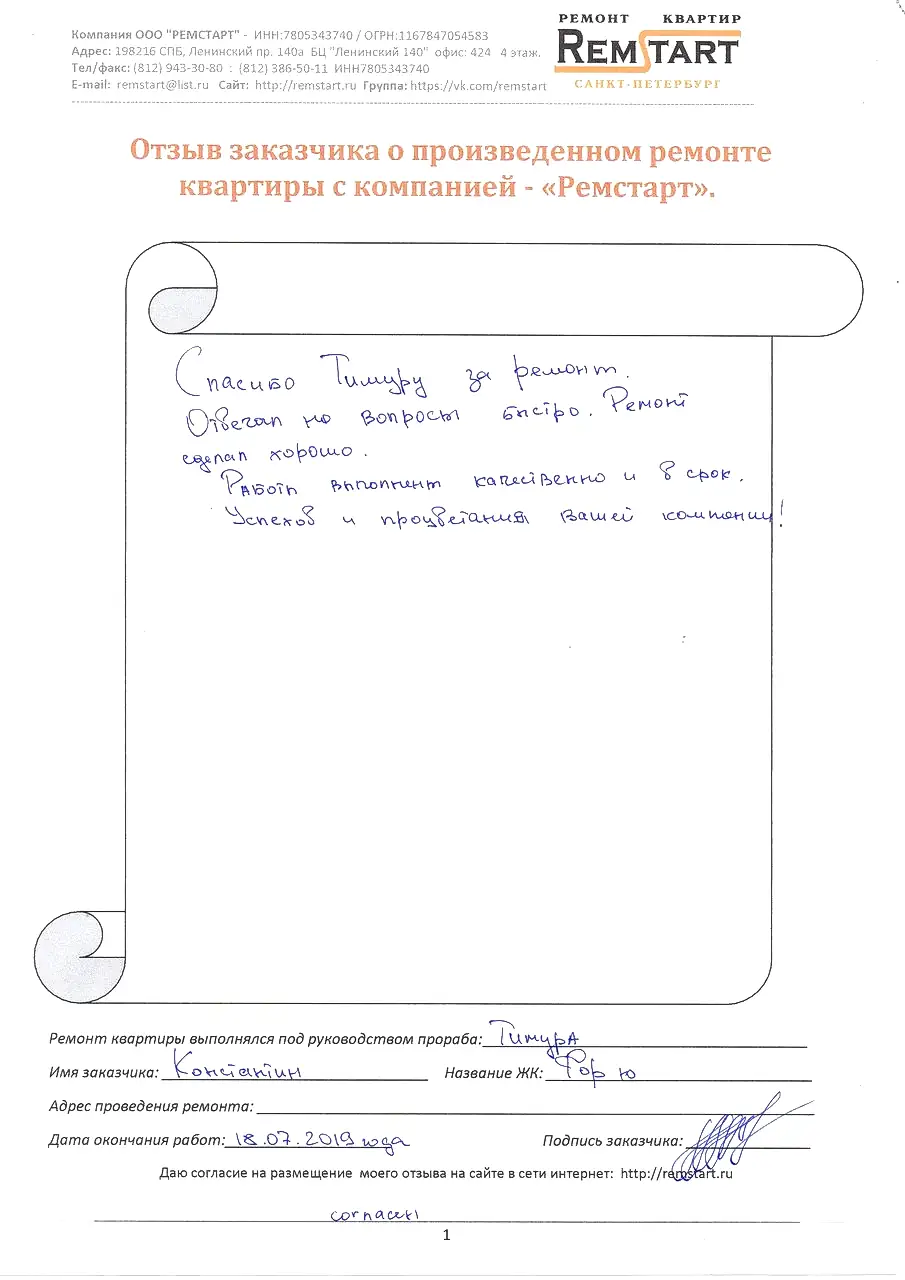 Компания ООО "РЕМСТАРТ" - ИНН:7805343740 / ОГРН:1167847054583
Адрес: 198216 СПБ, Ленинский пр. 140а БЦ "Ленинский 140" офис: 424 4 этаж.
Тел/факс: (812) 943-30-80 : (812) 386-50-11 ИНН7805343740
E-mail: remstart@list.ru Сайт: http://remstart.ru Группа: https://vk.com/remstart
РЕМОНТ КВАРТИР
REMSTART
САНКТ-ПЕТЕРБУРГ
Отзыв заказчика о произведенном ремонте
квартиры с компанией - «Ремстарт».
Спасибо Тимуру за ремонт.
Отвечал на вопросы быстро. Ремонт
сделал хорошо.
Работы выполнены качественно и в срок.
Успехов и процветания вашей компании!
Ремонт квартиры выполнялся под руководством прораба: Тимура
Имя заказчика: Константин Название ЖК: Фор Ю
Адрес проведения ремонта:
Дата окончания работ: 18.07.2019 года Подпись заказчика:
Даю согласие на размещение моего отзыва на сайте в сети интернет: http://remstart.ru
согласен
1